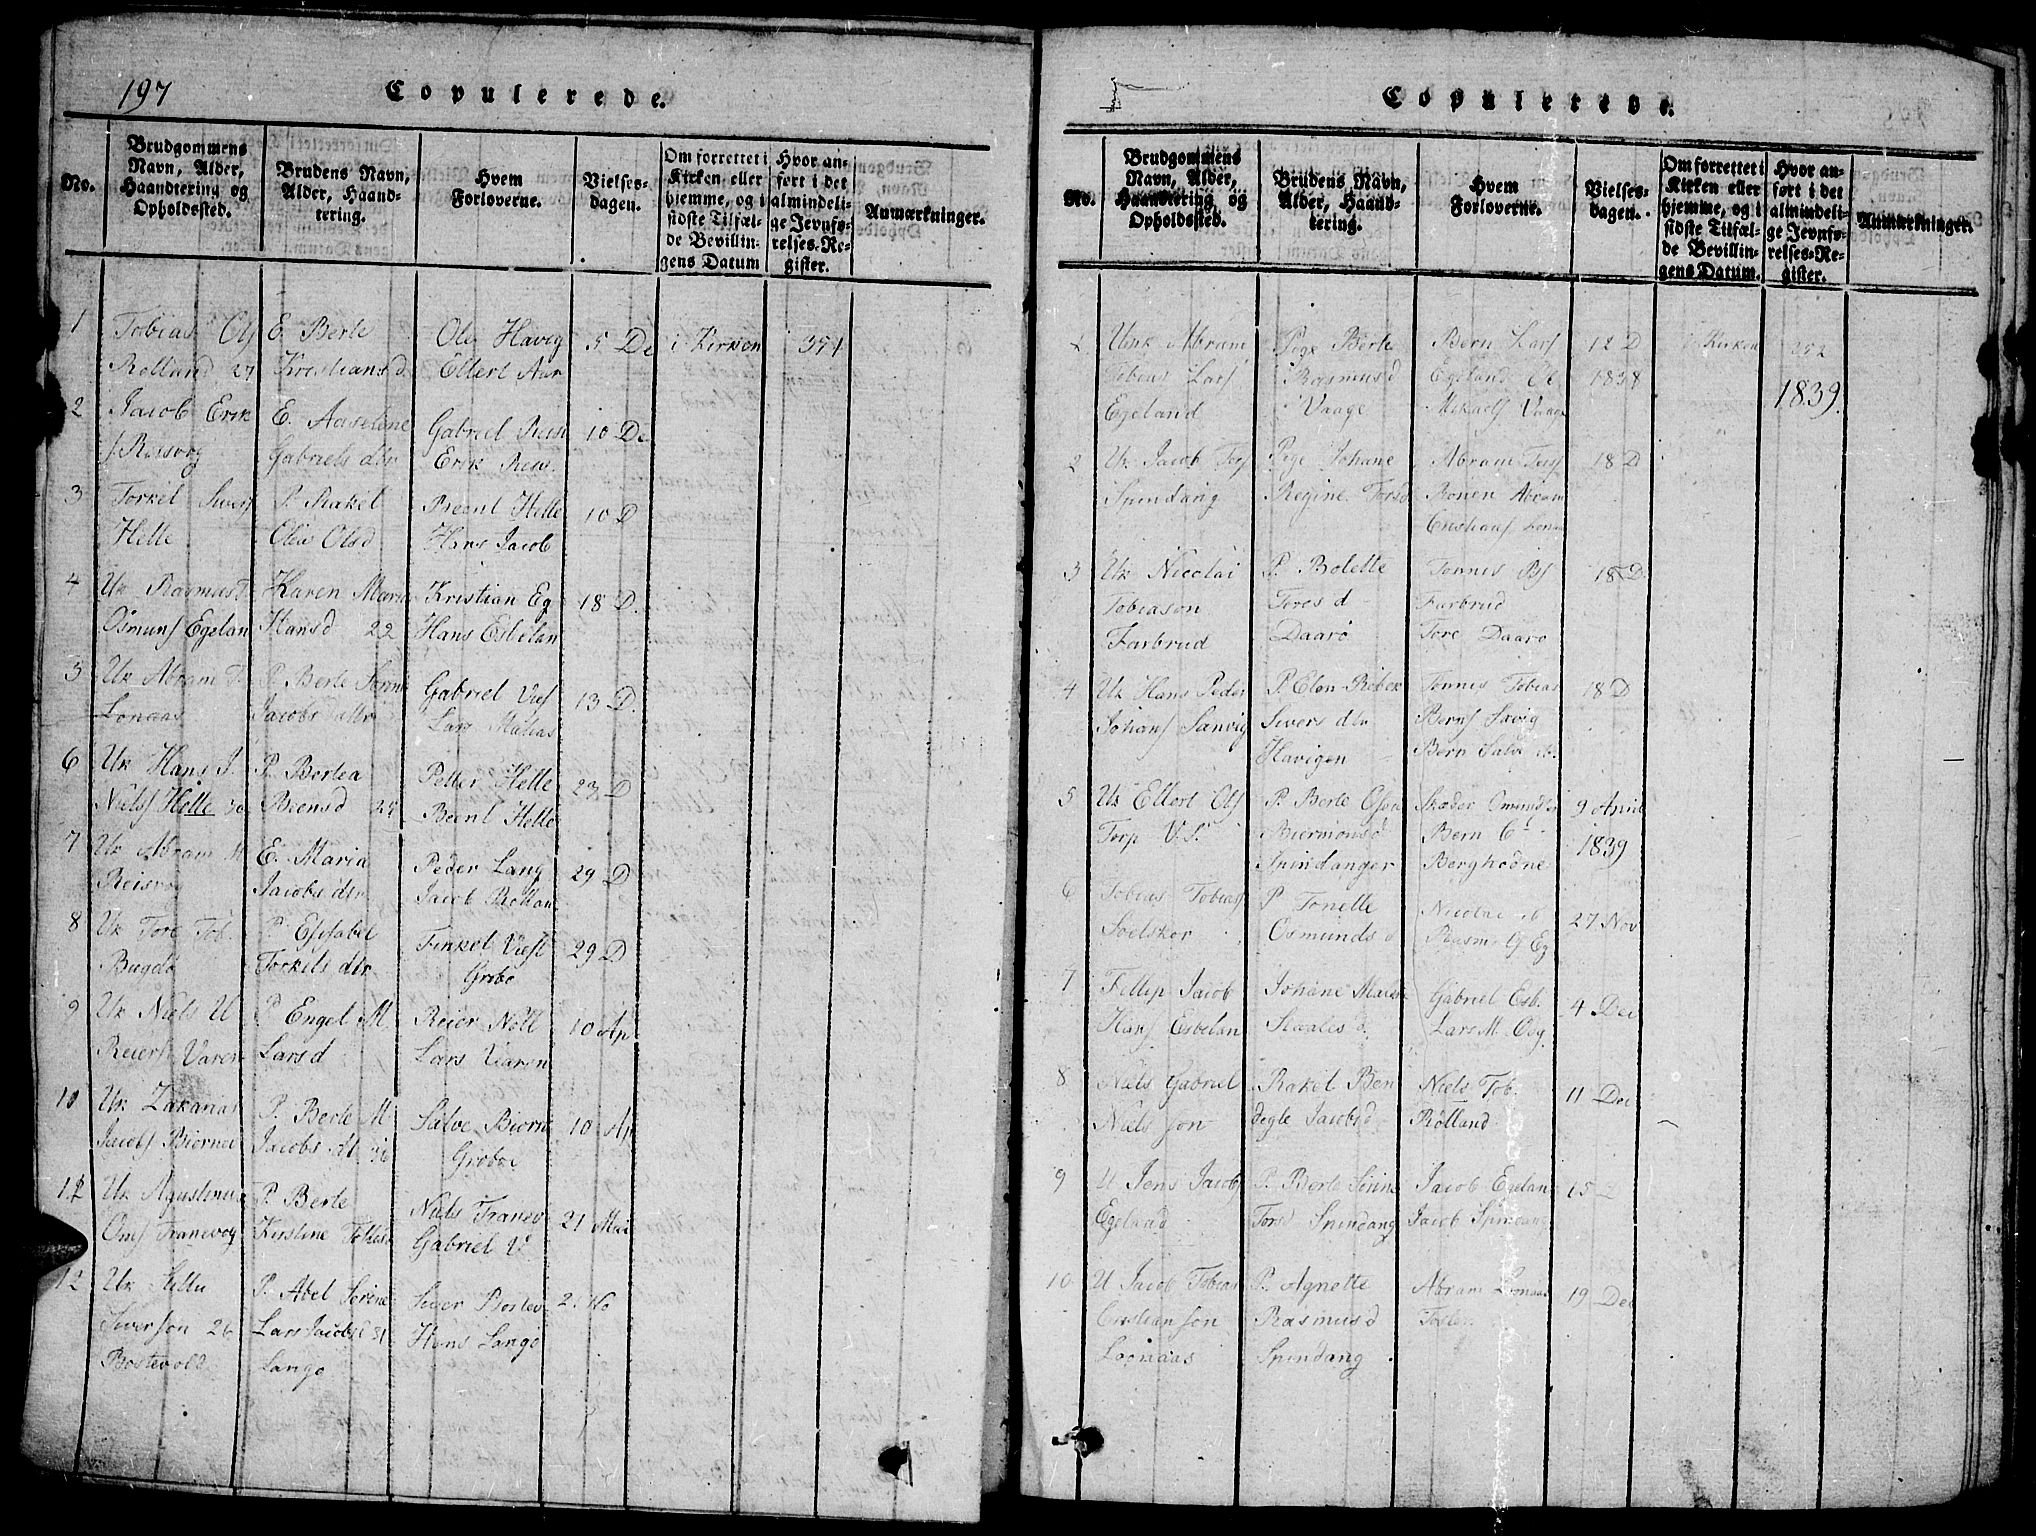 197
Copulerede.
No.
Brudgommens
Navn, Alder,
Haandtering og
Opholdssted.
Brudens Navn,
Alder, Haand-
tering.
Hvem
Forloverne.
Vielses-
dagen.
Om forrettet i
Kirken eller
hjemme, og i
sidste Tilfæl-
de Bevillin-
gens Datum
Hvor an-
ført i det
almindeli-
ge Jevnfø-
relses-Re-
gister.
Anmærkninger.
1
Tobias Ols
Rolland 27
E. Berte
Kristians d
Ole Havig
Ellert Aar
5 De
i Kirken
351
2
Jacob Erik
s. Reisvog
E. Aaselene
Gabriels dtr
Gabriel Reis
Erik Reis.
10 De
3
Torkel Sivers
Helle
P. Rakel
Olea Olsd
Beent Helle
Hans Jacob
10 D
4
Uk Rasmus T
Osmuns Egelan
Karen Maria
Hansd 22
Kristian Eg
Hans Esbelan
18 D.
Uk Abram T
Lonaas
P. Berte
Jacobs datr
Gabriel Vies
Lars Matias
13 D.
6
Uk Hans J
Niels Helle 30
P. Bertea
Beensd 24
Petter Helle
Beent Helle
23 D
7
Uk Abram M
Reisvog
E. Maria
Jacobs dtr
Peder Lang
Jacob Rollan
29 D
8
Uk Tore Tob.
Bugdø
Torkels dtr
Tinkel Viest
Grøbo
29 D
9
Uk Niels U
Reiers Varen
P. Engel M.
Larsd
Reier Noll
Lars Varen
10 Ap
10
Uk Zakarias
Jacobs Biørnev
P. Berte M.
Jacobs M 36
Salve Biørne
Grøboe
10 Ap
11
Uk Agustinus
Oms Tranevog
P. Berte
Kirstine
Niels Tranev
Gabriel V
21 Mai
12
Uk
Siverson 26
Bostevold
P. Abel Serine
Lars Jacobs 31
Lango
Siver Bostev
Hans Lango
2. No
Copulerede.
No.
Brudgommens
Navn, Alder,
Haandtering og
Opholdssted.
Brudens Navn,
Alder, Haand-
tering.
Hvem
Forloverne.
Vielses-
dagen.
Om forrettet i
Kirken eller
hjemme, og i
sidste Tilfæl-
de Bevillin-
gens Datum.
Hvor an-
ført i det
almindeli-
ge Jevnfø-
relses-Re-
gister.
Anmærkninger.
1
Unk Abram
Tobias Lars
Egeland
Pige Berte
Rasmusd
Vaage
Bern Lars
Egeland Ol
Mikaels Vaage
12 D
1838
Kirken
352
1839.
2
Uk Jacob Tors
Spindang
Pige Johane
Regine Torsd
Abram Tors
Bonen Abram
Cristians Lonaa
18 D
3
Uk Nicolai
Tobiason
Farbrud
P. Bolette
Tores d
Daarø
Tonnis
Farbrud
Tore Daarø
18 D
4
Uk Hans Peder
Johans Sanvig
P. Elen Rebek
Sivers dtr
Havigen
Tonnis Tobias
Berns Savig
Bern Salve
18 D
5
Uk Ellert Ols
Torp V.S.
P. Berte
Biermonsd
Spindanger
Omunds
Bern
Berghodne
9 April
1839
6
Tobias Tobias
Soelskor
P. Tonette
Osmunds d
Nicolai
Rasm. O Eg
27 Nov
7
Fillip Jacob
Hans Esbelan
Johane Malene
Staales d.
Gabriel Esb.
Lars M. Osg
4 Dec
8
Niels Gabriel
Niels son
Rakel Ben
degte Jacobsd
Niels Tob.
Rolland
11 Dec
9
U Jens Jacobs
Egeland
P. Berte Sirine
Torsd Spindang
Jacob Egelan
Jacob Spindang
15 D
10
U Jacob Tobias
Cristianson
Loonaas
P. Agnette
Rasmusd
Spindang
Abram Loonaas
19 Dec